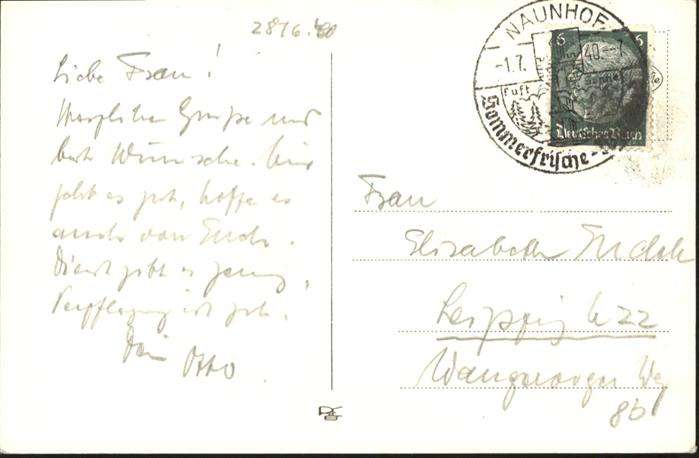 28/6. 40
Liebe Frau!
Herzlichen Grüße und
beste Wünsche. Mir
geht es gut, hoffe es
auch von Euch.
Dienst gibt es genug,
Verpflegung ist gut.
Dein Otto
NAUNHOF
-1.7. 40.--7
Luft
Sommerfrische-
5 5
Deutsches Reich
Frau
Elisabeth
Leipzig W 22
Wangerooger Weg
8b